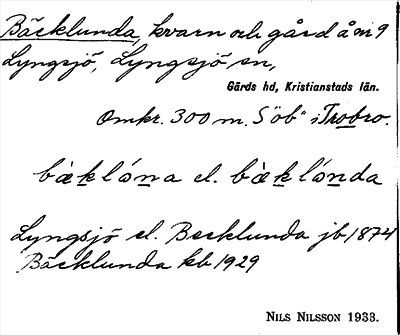 Bäcklunda, kvarn och gård å nr 9
Lyngsjö, Lyngsjö sn,
Gärds hd, Kristianstads län.
Omkr. 300 m. S "öb" i Trobro.
bàklóna el. bàklónda
Lyngsjö el. Becklunda jb 1874
Bäcklunda kb 1929
NILS NILSSON 1933.